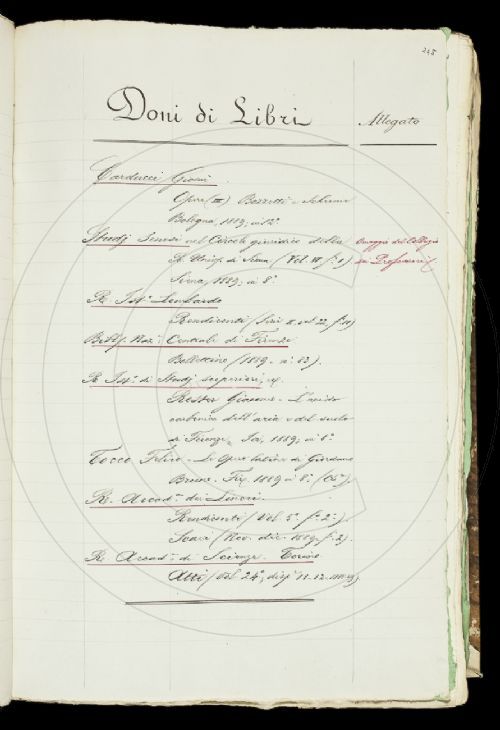 245
Doni di Libri
Allegato
Carducci Giosuè.
Opere (III) Bozzetti e Scherme
Bologna, 1889; in 12°
Studj Senesi nel Circolo giuridico della
R. Univ. di Siena (Vol. VI f. 1)
Siena, 1889; in 8°
Omaggio del Collegio
dei Professori
R. Ist° Lombardo
Rendiconti (Serie II. vol. 22, f.
Bibl. Naz. Centrale di Firenze
Bollettino (1889 - n. 83).
R. Ist° di Studj superiori,
Roster Giacomo - L'acido
carbonico dell'aria e del suolo
di Firenze, 1889; in 8°
Tocco Felice - Le Opere latine di Giordano
Bruno. Fir. 1889 in 8°
R. Accad. dei Lincei.
Rendiconti (Vol. 5° f. 2°)
Scavi (Nov. 1889
R. Accad. di Scienze. Torino
Atti (Vol. 24°, disp. 11-12